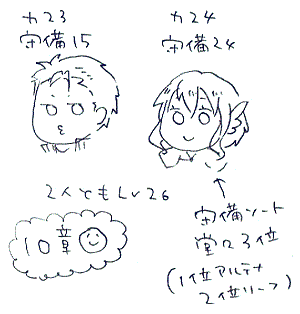 力23
守備15
力24
守備24
2人ともLv26
10章
守備ソート
堂々3位
(1位アルテナ
2位リーフ)